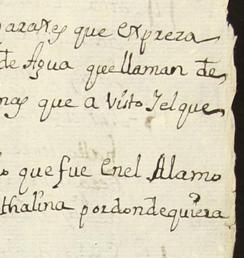 parajes que expreza
de Agua que llaman de
mas que a visto Jelque
o que fue Enel Alamo
thalina pordondequiera